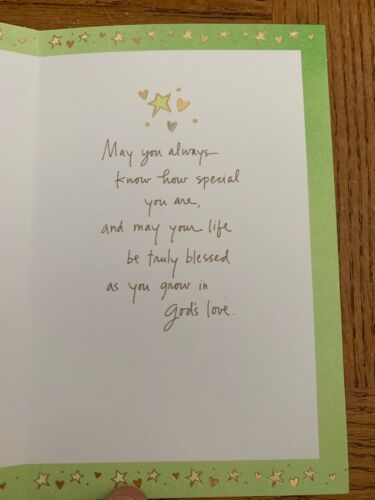 May you always
know how special
you are,
and may your life
be truly blessed
as you grow in
God's love.